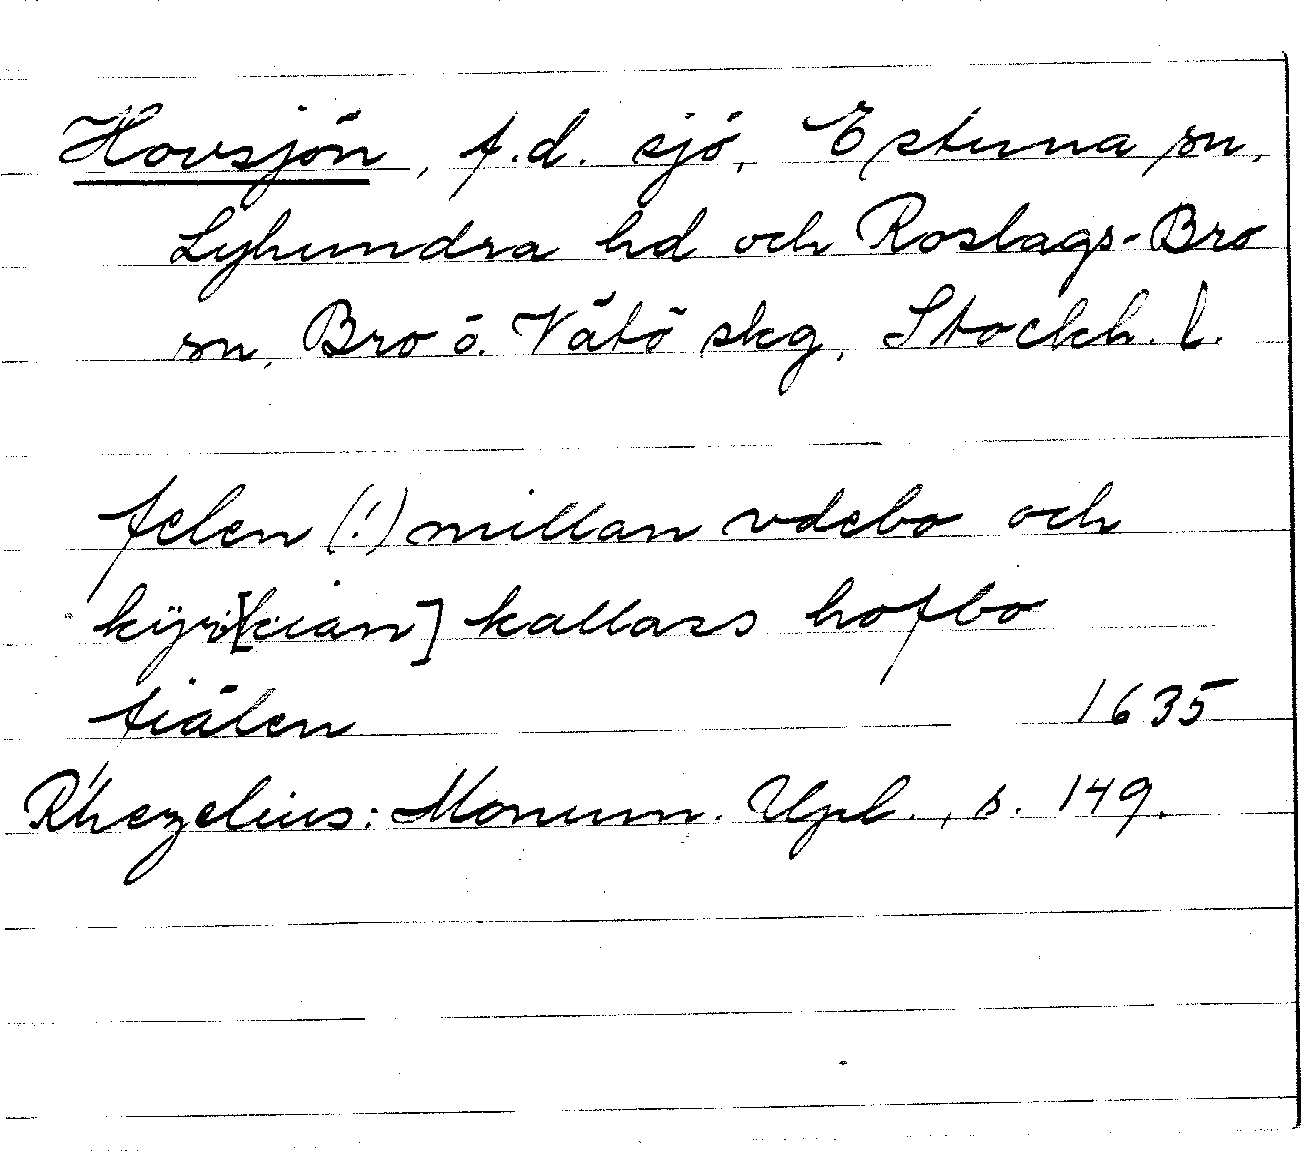 Hovsjön, f.d. sjö, Estuna sn,
Lyhundra hd och Roslags-Bro
sn, Bro o. Vätö skg, Stockh. l.
felen (!) millan vdebo och
kÿri[kian] kallass hofbo
fiälen 1635
Rhezelius: Monum. Upl., s. 149.